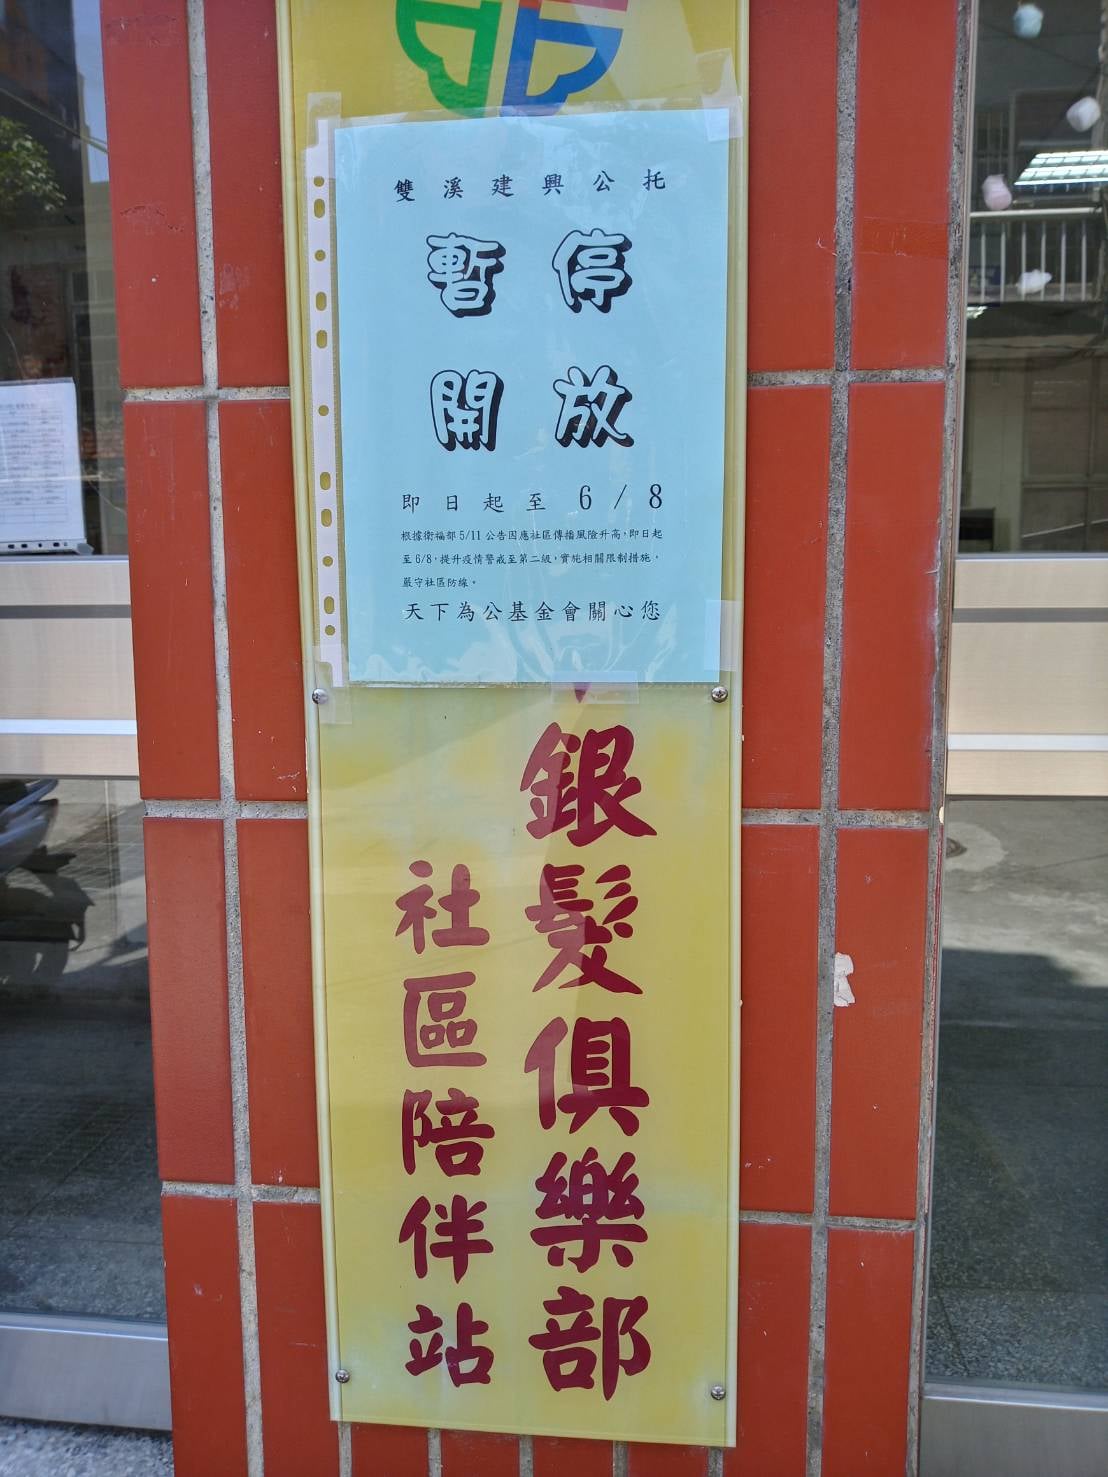 雙溪建興公托
暫停
開放
即日起至 6/8
根據衛福部 5/11 公告因應社區傳播風險升高,即日起
至 6/8,提升疫情警戒至第二級,實施相關限制措施,
嚴守社區防線。
天下為公基金會關心您
銀髮俱樂部
社區陪伴站